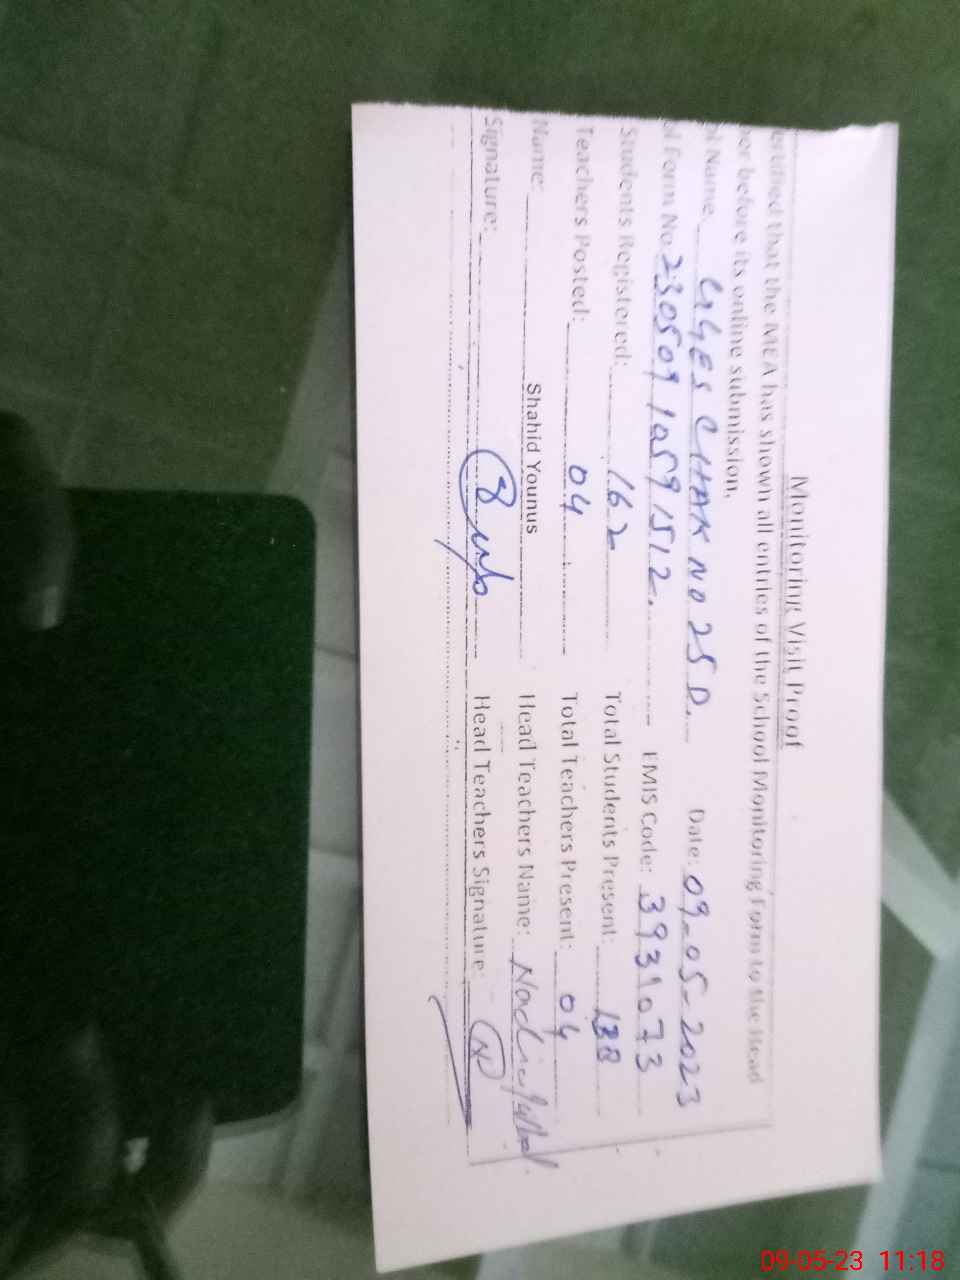 Monitoring Visit Proof
ertified that the MEA has shown all entries of the School Monitoring Form to the Head
er before its online submission.
ol Name GGES CHAK NO 25 D. Date: 09-05-2023
ol Form No 23050910591512. EMIS Code: 3931073
Students Registered: 162 Total Students Present: 138
Teachers Posted: 04 Total Teachers Present: 04
Name: Shahid Younus Head Teachers Name: Nadia
Signature: Head Teachers Signature:
09-05-23 11:18